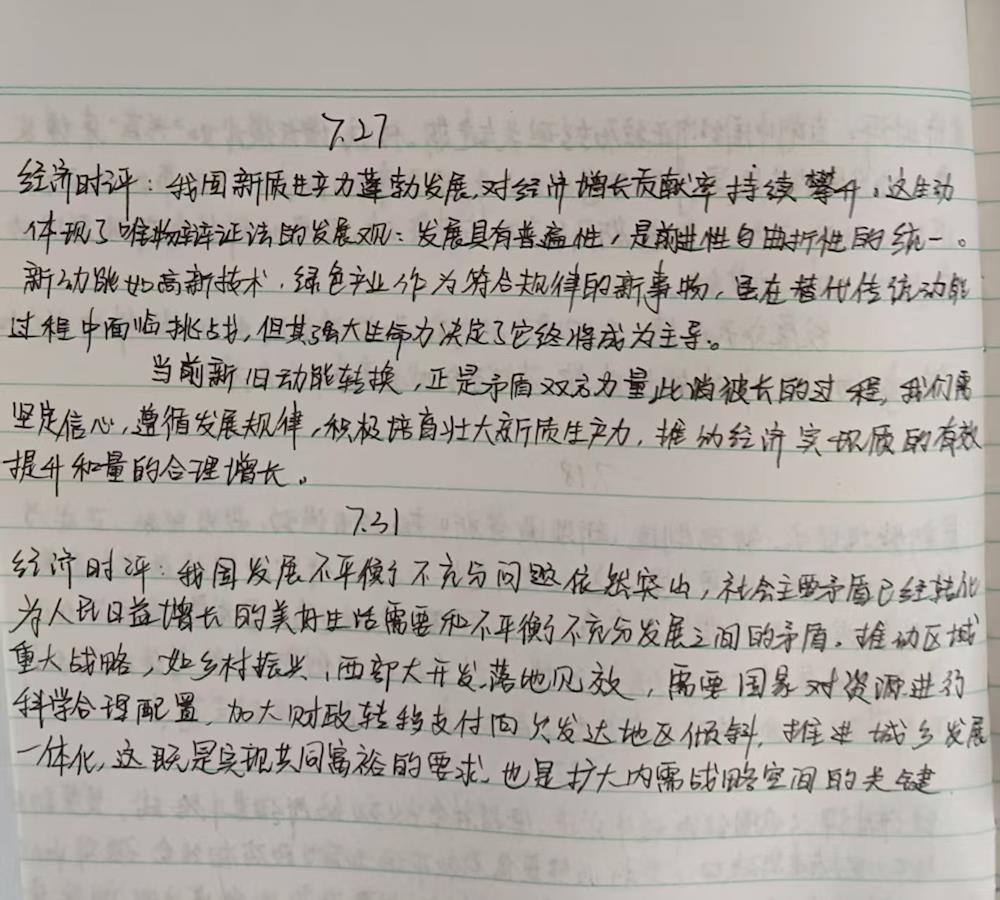 7.27
经济时评：我国新质生产力蓬勃发展，对经济增长贡献率持续攀升，这生动
体现了唯物辩证法的发展观：发展具有普遍性，是前进性与曲折性的统一。
新动能如高新技术，绿色产业作为符合规律的新事物，虽在替代传统动能
过程中面临挑战，但其强大生命力决定了它终将成为主导。
当前新旧动能转换，正是矛盾双方力量此消彼长的过程，我们需
坚定信心，遵循发展规律，积极培育壮大新质生产力，推动经济实现质的有效
提升和量的合理增长。
7.31
经济时评：我国发展不平衡不充分问题依然突出，社会主要矛盾已经转化
为人民日益增长的美好生活需要和不平衡不充分发展之间的矛盾。推动区域
重大战略，如乡村振兴，西部大开发落地见效，需要国家对资源进行
科学合理配置，加大财政转移支付向欠发达地区倾斜，推进城乡发展
一体化，这既是实现共同富裕的要求，也是扩大内需战略空间的关键